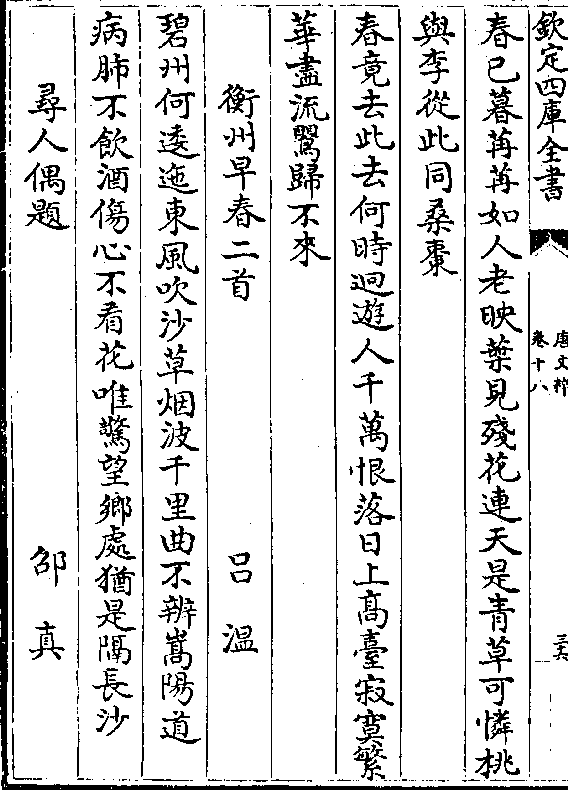 欽定四庫全書
唐文粹
卷十八
三六
春已暮苒苒如人老映葉見殘花連天是青草可憐桃
與李從此同桑棗
春竟去此去何時迴遊人千萬恨落日上高臺寂寞繁
華盡流鶯歸不來
衡州早春二首 吕溫
碧州何逶迤東風吹沙草烟波千里曲不辨嵩陽道
病肺不飲酒傷心不看花唯驚望鄉處猶是隔長沙
尋人偶題 邵真